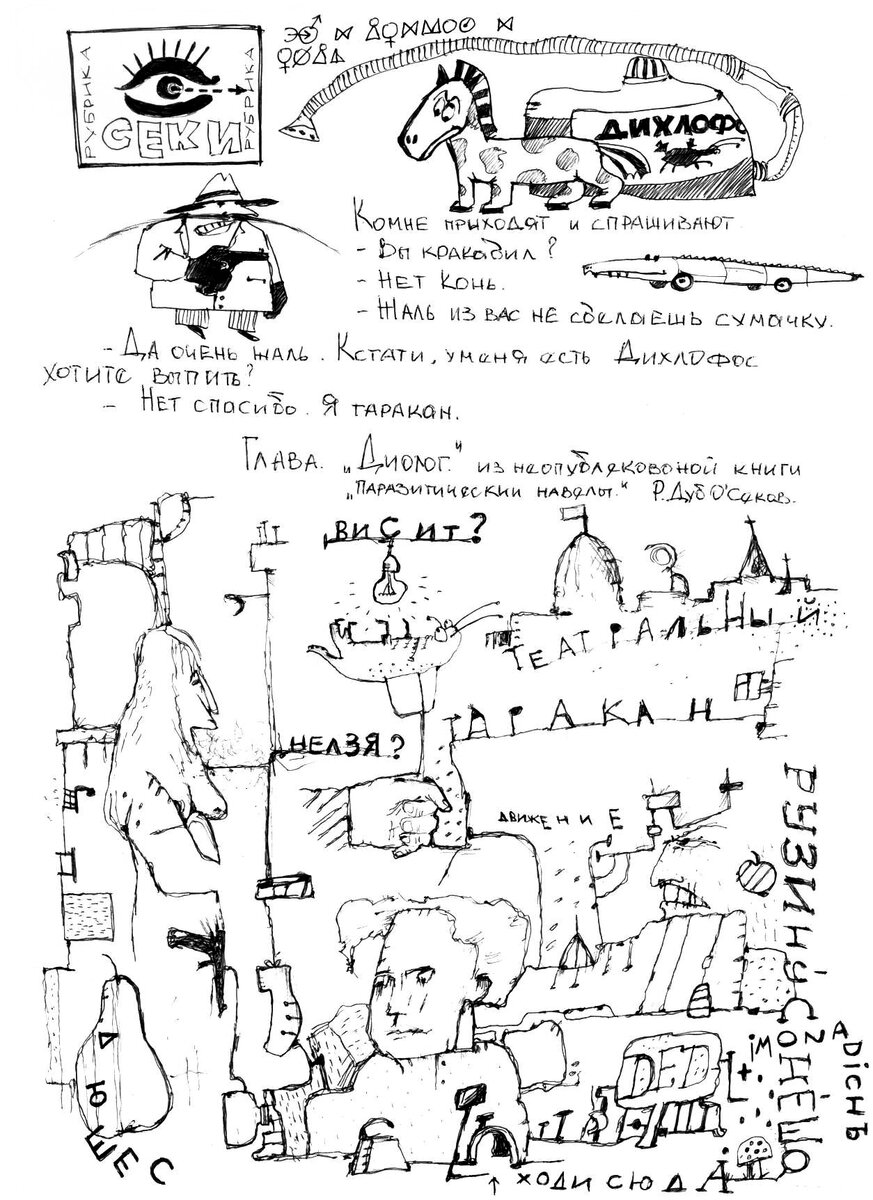 РУБРИКА
СЕКИ
РУБРИКА
ДИХЛОФО
Комне приходят и спрашивают
- Вы кракадил?
- Нет конь.
- Жаль из вас не сделаешь сумачку.
- Да очень жаль. Кстати, уменя есть Дихлофос
хотите выпить?
- Нет спасибо. Я таракан.
Глава. „Диолог." из неопубляковоной книги
„Паразитический навелы." Р. Дуб О'Секов.
ВИСИТ?
ТЕАТРАЛЬНЫЙ
ТАРАКАН
НЕЛЗЯ?
ДВИЖЕНИЕ
ДЮШЕС
DED
↑ ХОДИ СЮДА